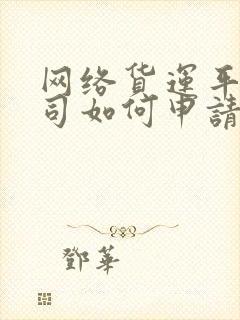 网络货運平
司如何申請
鄧華